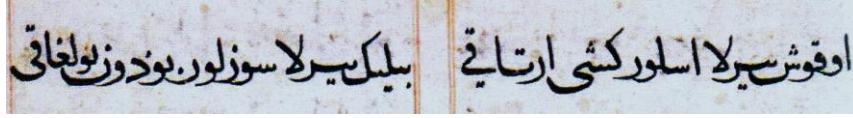 اوقوش بیرلا اسلور کشی ارتاقی بیلیک بیرلا سوزلور بوذون بولغاقی